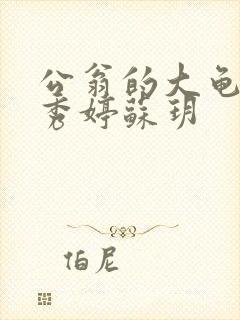 公翁的大龟
秀婷蘇玥
伯尼